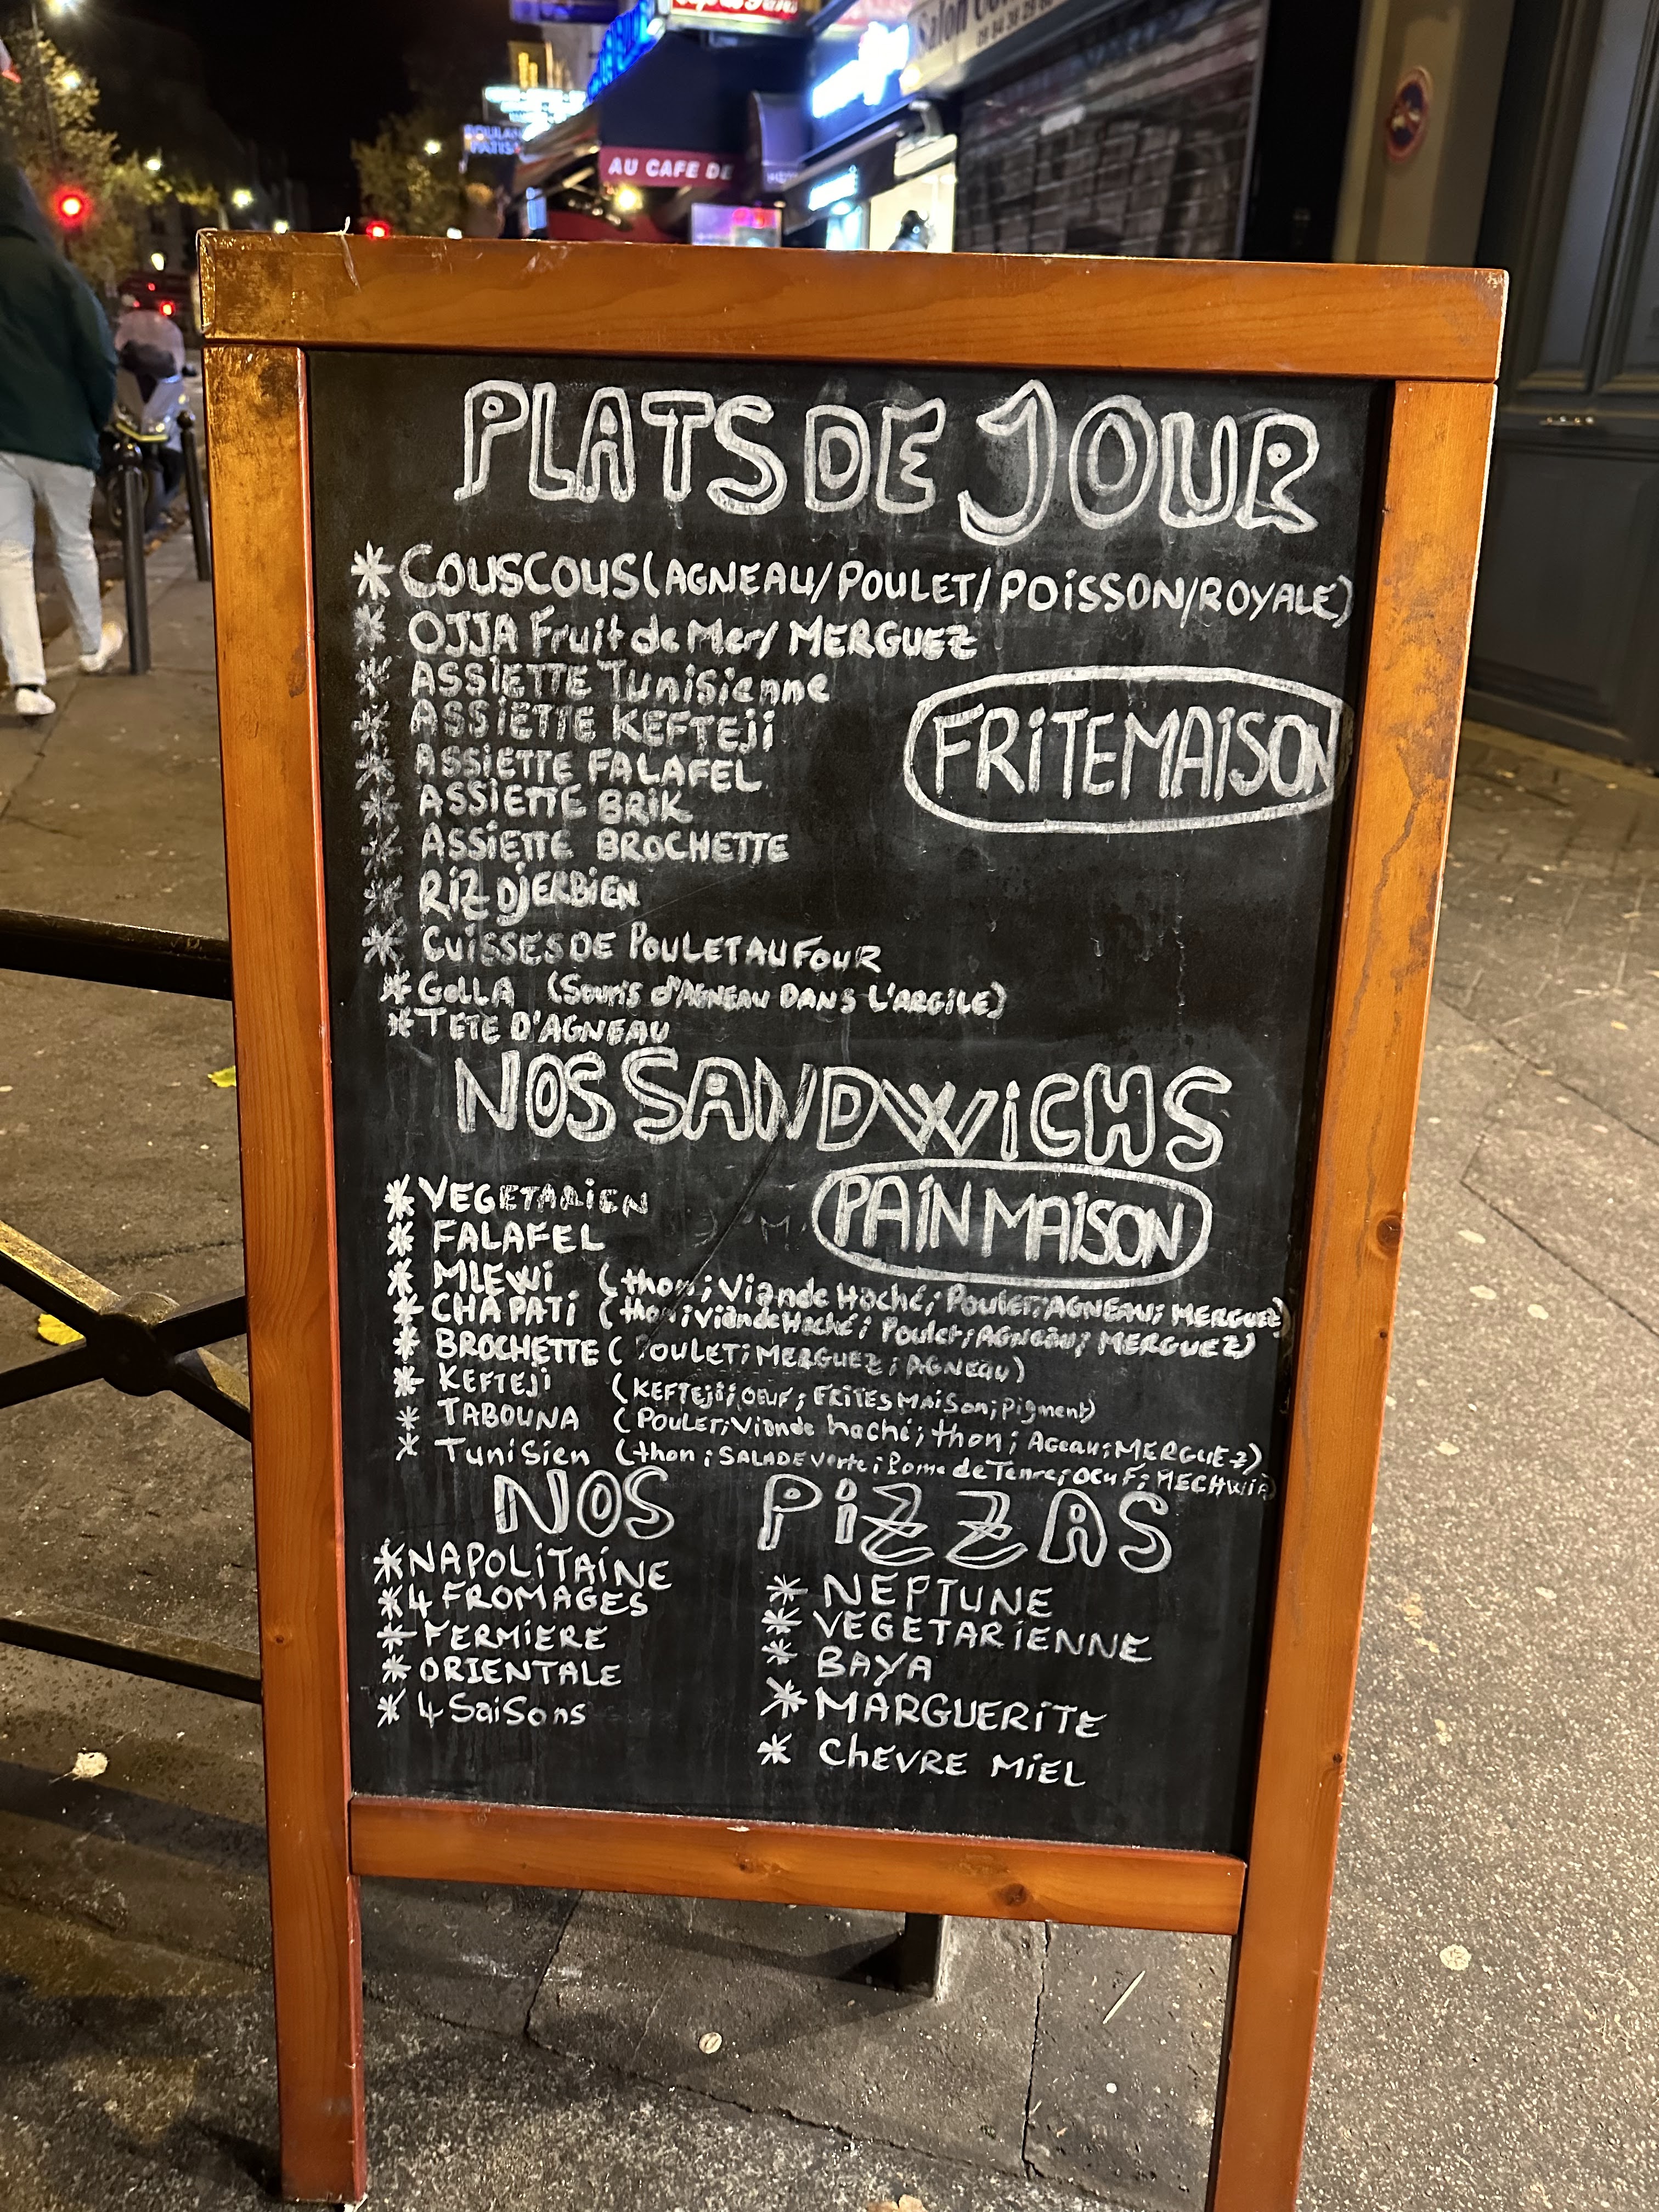 Salon Co
AU CAFE DE
PLATS DE JOUR
* COUSCOUS (AGNEAU/POULET/POISSON/ROYALE)
* OJJA Fruit de Mer/ MERGUEZ
* ASSIETTE Tunisienne
* ASSIETTE KEFTEJI
* ASSIETTE FALAFEL
* ASSIETTE BRIK
* ASSIETTE BROCHETTE
FRITE MAISON
* RIZ DJERBIEN
* CUISSES DE POULET AU FOUR
* GOLLA (Souris d'AGNEAU DANS L'ARGILE)
* TETE D'AGNEAU
NOS SANDWICHS
PAIN MAISON
* VEGETARIEN
* FALAFEL
* MLEWI (thon; Viande Haché; Poulet; AGNEAU; MERGUEZ)
* CHAPATI (thon; viande Haché; Poulet; AGNEAU; MERGUEZ)
* BROCHETTE (POULET; MERGUEZ; AGNEAU)
* KEFTEJI (KEFTEJI; OEUF; FRITES MAISON; Pigment)
* TABOUNA (POULET; Viande haché; thon; Ageau; MERGUEZ)
* Tunisien (thon; SALADE verte; Pome de Terre; OEUF; MECHWIA)
NOS PIZZAS
* NAPOLITAINE
* 4 FROMAGES
* FERMIERE
* ORIENTALE
* 4 SaiSons
* NEPTUNE
* VEGETARIENNE
* BAYA
* MARGUERITE
* CHEVRE MIEL